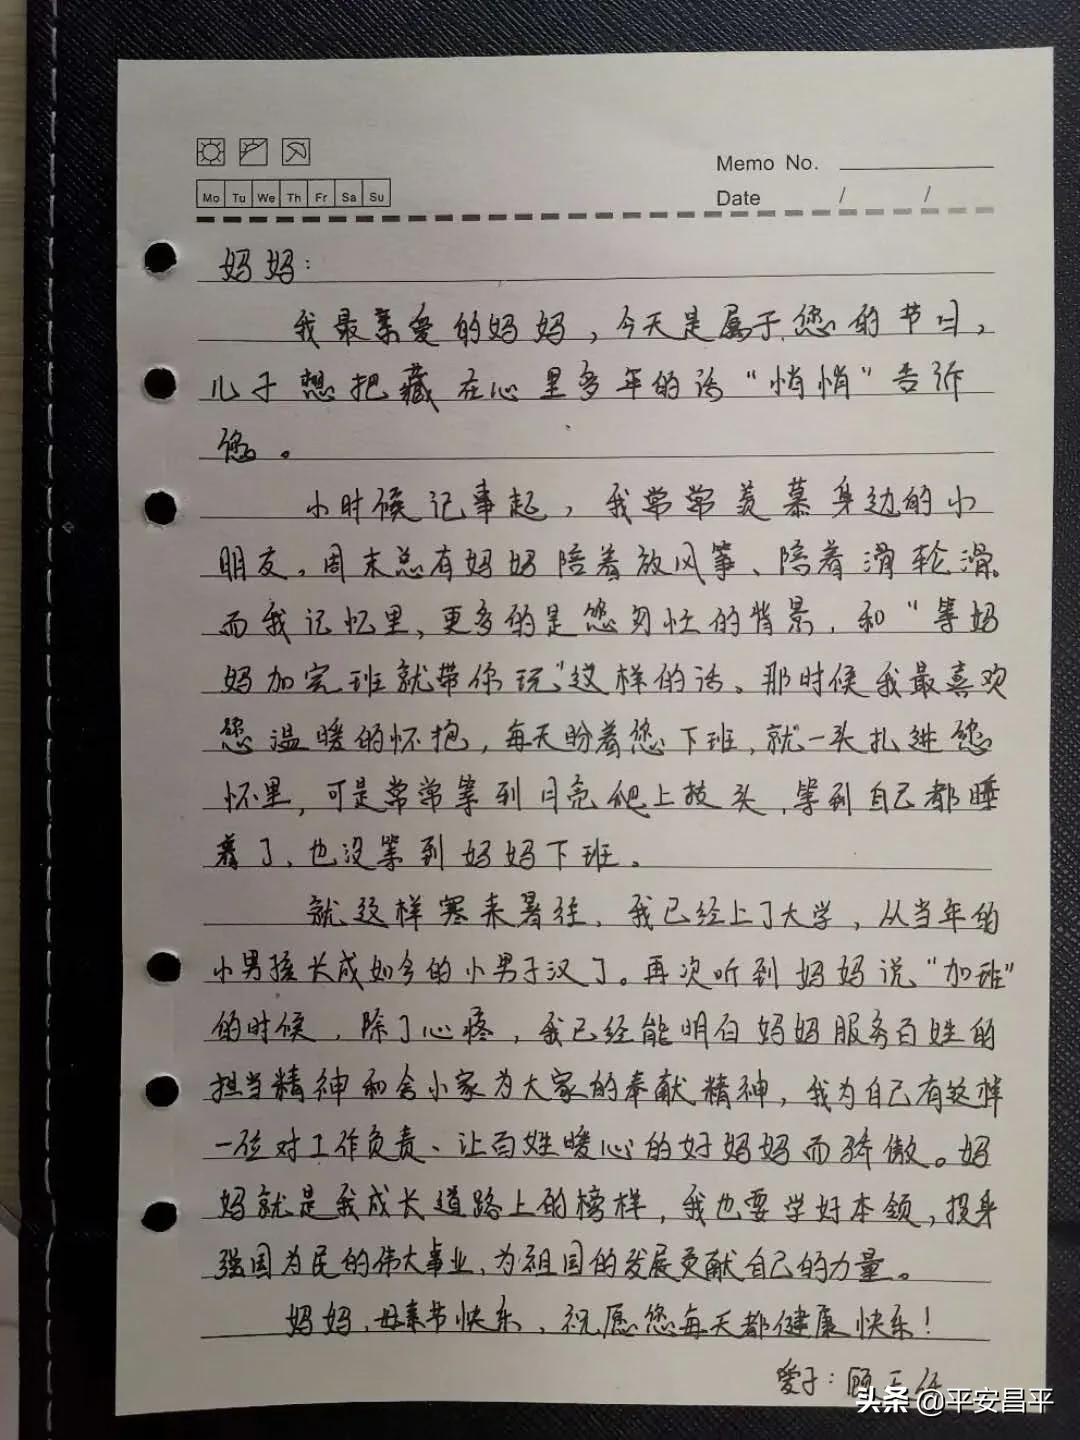 Memo No.
Mo Tu We Th Fr Sa Su
Date / /
妈妈：
我最亲爱的妈妈，今天是属于您的节日，
儿子想把藏在心里多年的话“悄悄”告诉
您。
小时候记事起，我常常羡慕身边的小
朋友，周末总有妈妈陪着放风筝、陪着滑轮滑。
而我记忆里，更多的是您匆忙的背景，和“等妈
妈加完班就带你玩”这样的话。那时候我最喜欢
您温暖的怀抱，每天盼着您下班，就一头扎进您
怀里，可是常常等到月亮爬上枝头，等到自己都睡
着了，也没等到妈妈下班。
就这样寒来暑往，我已经上了大学，从当年的
小男孩长成如今的小男子汉了。再次听到妈妈说“加班”
的时候，除了心疼，我已经能明白妈妈服务百姓的
担当精神和舍小家为大家的奉献精神，我为自己有这样
一位对工作负责、让百姓暖心的好妈妈而骄傲。妈
妈就是我成长道路上的榜样，我也要学好本领，投身
强国为民的伟大事业，为祖国的发展贡献自己的力量。
妈妈，母亲节快乐，祝愿您每天都健康快乐！
爱子：顾
头条 @平安昌平